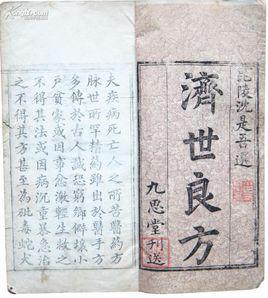 毗陵沈是吾選
濟世良方
九思堂刊送
夫疾病死亡人之所苦醫藥方
脉世所罕精約雖出於醫手方
多傳於古人識恐窮鄉僻壤小
戸貧家或因事愈激輕生救之
不得其法或因病沉重暴急治
之不得其方甚至為砒毒蛇火